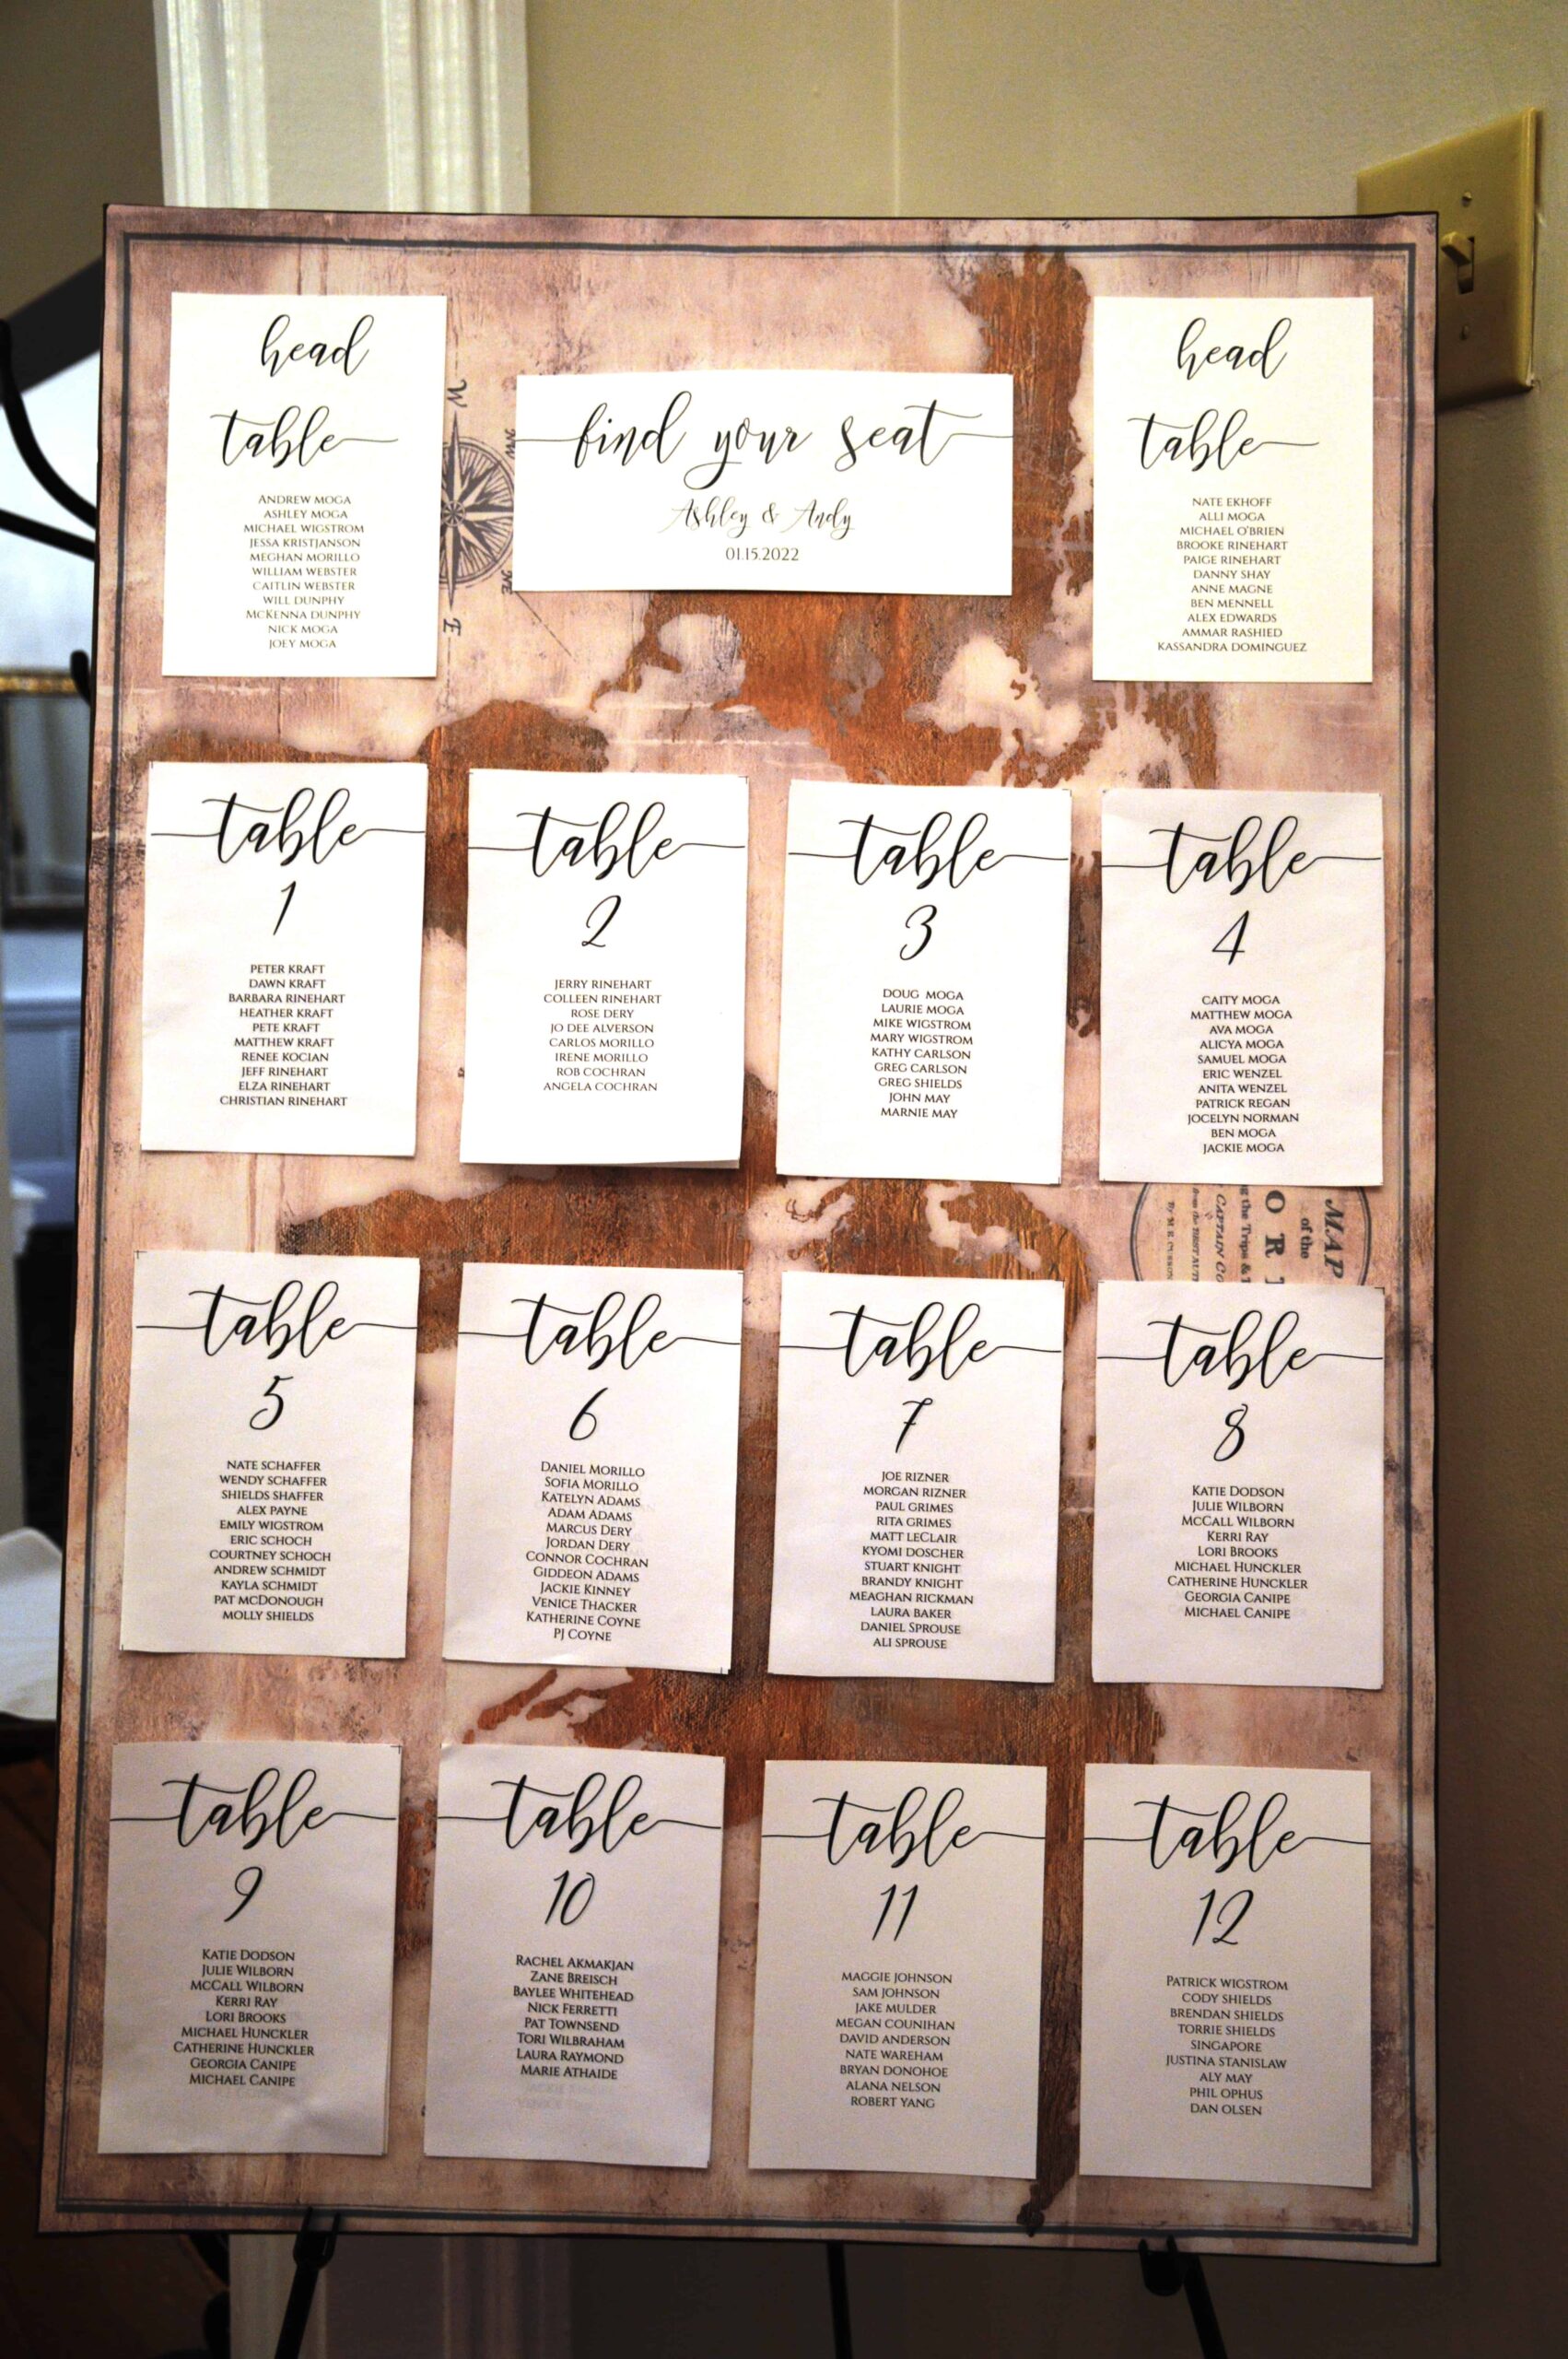 head
table
ANDREW MOGA
ASHLEY MOGA
MICHAEL WIGSTROM
JESSA KRISTJANSON
MEGHAN MORILLO
WILLIAM WEBSTER
CAITLIN WEBSTER
WILL DUNPHY
MCKENNA DUNPHY
NICK MOGA
JOEY MOGA
find your seat
Ashley & Andy
01.15.2022
head
table
NATE EKHOFF
ALLI MOGA
MICHAEL O'BRIEN
BROOKE RINEHART
PAIGE RINEHART
DANNY SHAY
ANNE MAGNE
BEN MENNELL
ALEX EDWARDS
AMMAR RASHIED
KASSANDRA DOMINGUEZ
W
NW
E
table
1
PETER KRAFT
DAWN KRAFT
BARBARA RINEHART
HEATHER KRAFT
PETE KRAFT
MATTHEW KRAFT
RENEE KOCIAN
JEFF RINEHART
ELZA RINEHART
CHRISTIAN RINEHART
table
2
JERRY RINEHART
COLLEEN RINEHART
ROSE DERY
JO DEE ALVERSON
CARLOS MORILLO
IRENE MORILLO
ROB COCHRAN
ANGELA COCHRAN
table
3
DOUG MOGA
LAURIE MOGA
MIKE WIGSTROM
MARY WIGSTROM
KATHY CARLSON
GREG CARLSON
GREG SHIELDS
JOHN MAY
MARNIE MAY
table
4
CAITY MOGA
MATTHEW MOGA
AVA MOGA
ALICYA MOGA
SAMUEL MOGA
ERIC WENZEL
ANITA WENZEL
PATRICK REGAN
JOCELYN NORMAN
BEN MOGA
JACKIE MOGA
MAP
of the
table
5
NATE SCHAFFER
WENDY SCHAFFER
SHIELDS SHAFFER
ALEX PAYNE
EMILY WIGSTROM
ERIC SCHOCH
COURTNEY SCHOCH
ANDREW SCHMIDT
KAYLA SCHMIDT
PAT MCDONOUGH
MOLLY SHIELDS
table
6
DANIEL MORILLO
SOFIA MORILLO
KATELYN ADAMS
ADAM ADAMS
MARCUS DERY
JORDAN DERY
CONNOR COCHRAN
GIDDEON ADAMS
JACKIE KINNEY
VENICE THACKER
KATHERINE COYNE
PJ COYNE
table
7
JOE RIZNER
MORGAN RIZNER
PAUL GRIMES
RITA GRIMES
MATT LECLAIR
KYOMI DOSCHER
STUART KNIGHT
BRANDY KNIGHT
MEAGHAN RICKMAN
LAURA BAKER
DANIEL SPROUSE
ALI SPROUSE
table
8
KATIE DODSON
JULIE WILBORN
MCCALL WILBORN
KERRI RAY
LORI BROOKS
MICHAEL HUNCKLER
CATHERINE HUNCKLER
GEORGIA CANIPE
MICHAEL CANIPE
table
9
KATIE DODSON
JULIE WILBORN
MCCALL WILBORN
KERRI RAY
LORI BROOKS
MICHAEL HUNCKLER
CATHERINE HUNCKLER
GEORGIA CANIPE
MICHAEL CANIPE
table
10
RACHEL AKMAKJAN
ZANE BREISCH
BAYLEE WHITEHEAD
NICK FERRETTI
PAT TOWNSEND
TORI WILBRAHAM
LAURA RAYMOND
MARIE ATHAIDE
table
11
MAGGIE JOHNSON
SAM JOHNSON
JAKE MULDER
MEGAN COUNIHAN
DAVID ANDERSON
NATE WAREHAM
BRYAN DONOHOE
ALANA NELSON
ROBERT YANG
table
12
PATRICK WIGSTROM
CODY SHIELDS
BRENDAN SHIELDS
TORRIE SHIELDS
SINGAPORE
JUSTINA STANISLAW
ALY MAY
PHIL OPHUS
DAN OLSEN